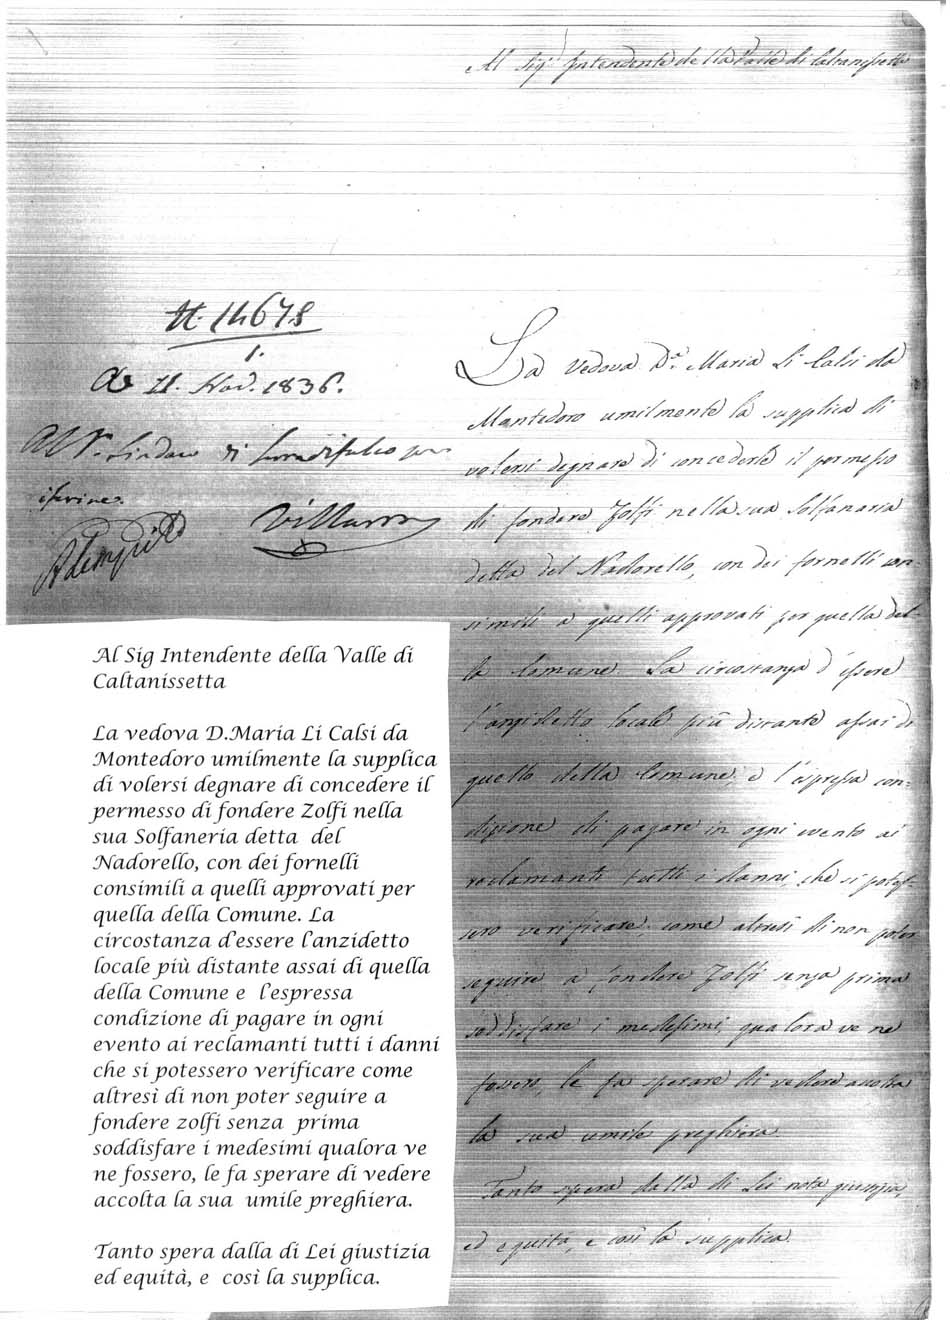 Al Sig.r Intendente della Valle di Caltanissetta
N. 14678
1.
A 11. Nov. 1836.
Al S.r Sindaco di
La Vedova D.a Maria Li Calsi da
Montedoro umilmente la supplica di
volersi degnare di concederle il permesso
di fondere Zolfi nella sua Solfanaria
detta del Nadorello, con dei fornelli con-
simili a quelli approvati per quella del-
la Comune. La circostanza d'essere
l'anzidetto locale più distante assai di
quello della Comune, e l'espressa con-
dizione di pagare in ogni evento ai
reclamanti tutti i danni, che si potes-
sero verificare come altresì di non poter
seguire a fondere Zolfi senza prima
soddisfare i medesimi, qualora ve ne
fossero, le fa sperare di vedere accolta
la sua umile preghiera.
Tanto spera dalla di Lei nota giustizia,
ed equità, e così la supplica.
Al Sig Intendente della Valle di
Caltanissetta
La vedova D.Maria Li Calsi da
Montedoro umilmente la supplica
di volersi degnare di concedere il
permesso di fondere Zolfi nella
sua Solfaneria detta del
Nadorello, con dei fornelli
consimili a quelli approvati per
quella della Comune. La
circostanza d'essere l'anzidetto
locale più distante assai di quella
della Comune e l'espressa
condizione di pagare in ogni
evento ai reclamanti tutti i danni
che si potessero verificare come
altresì di non poter seguire a
fondere zolfi senza prima
soddisfare i medesimi qualora ve
ne fossero, le fa sperare di vedere
accolta la sua umile preghiera.
Tanto spera dalla di Lei giustizia
ed equità, e così la supplica.